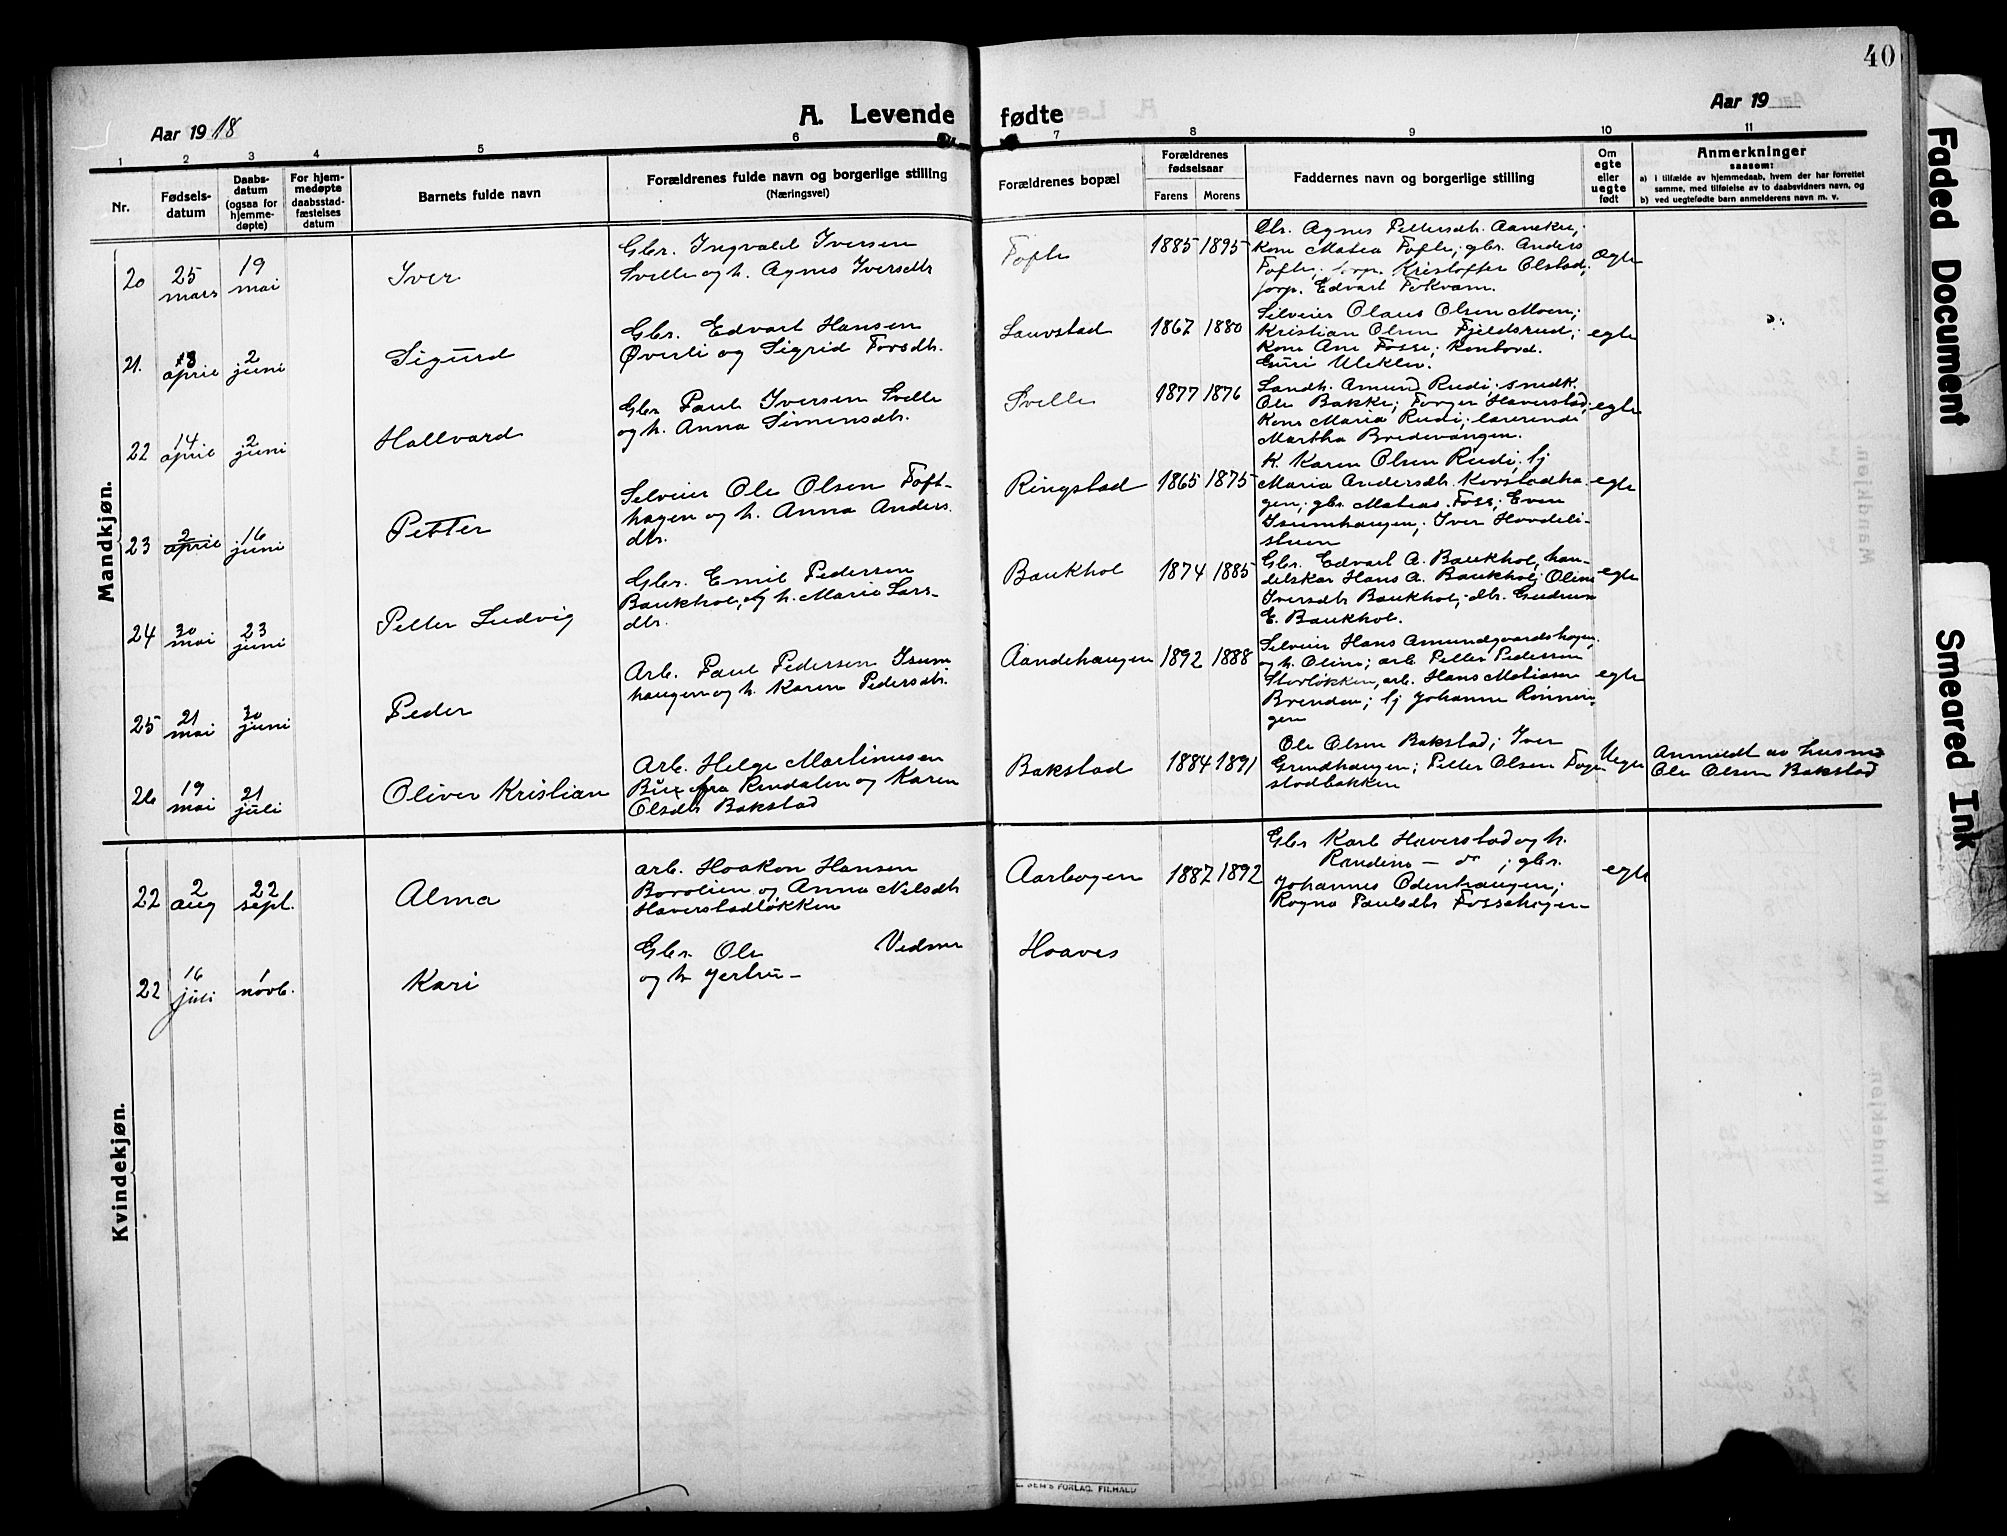 40
Aar 1918
A. Levende fødte
Aar 19
1 2 3 4 5 6 7 8 9 10 11
Nr.
Fødsels-
datum
Daabs-
datum
(ogsaa for
hjemme-
døpte)
For hjem-
medøpte
daabsstad-
fæstelses
datum
Barnets fulde navn
Forældrenes fulde navn og borgerlige stilling
(Næringsvei)
Forældrenes bopæl
Forældrenes
fødselsaar
Farens Morens
Faddernes navn og borgerlige stilling
Om
egte
eller
uegte
født
Anmerkninger
saasom:
a) i tilfælde av hjemmedaab, hvem der har forrettet
samme, med tilføielse av to daabsvidners navn, og
b) ved uegtefødte barn anmelderens navn m. v.
Mandkjøn.
20
25
mars
19
mai
Iver
Gbr. Ingvald Iversen
Svelle og h. Agnes Iversdtr
Tofte
1885 1895
Kone Matea Tofte; gbr. Anders
Tofte; forp. Kristoffer Olstad;
forp. Edvart Fekvam.
Ægte
21.
april
2
juni
Sigurd
Gbr. Edvart Hansen
Øverli og Sigrid Torsdtr.
Sauvstad
1867 1880
Selveier Olaus Olsen Moen;
Kristian Olsen Fjeldsrud;
Kone Ane Fosse;
Guri Uleklev.
egte
22
14
april
2
juni
Hallvard
Gbr. Paul Iversen Svelle
og h. Anna Simensdtr.
Svelle
1877 1876
Landh. Amund Rudi; snedk.
Ole Bakke; Torger Haverstad;
Kone Maria Rudi; lærerinde
Martha Bredevangen.
egte
23
2
april
16
juni
Petter
Selveier Ole Olsen Toft-
hagen og h. Anna Anders-
dtr.
Ringstad
1865 1875
K. Karen Olsen Rudi; tj
Maria Andersdtr. Korstadha-
gen; gbr. Mateas Foss; Even
Isumhaugen; Iver Hovdeli-
stuen
egte
24
30
mai
23
juni
Petter Ludvig
Gbr. Emil Pedersen
Baukhol, og h. Marie Lars-
dtr.
Baukhol
1874 1885
Gbr. Edvart A. Baukhol, han-
delskar Hans A. Baukhol; Oline
Iversdtr Baukhol; dtr. Gudrun
E. Baukhol.
egte
25
21
mai
30
juni
Peder
Arb. Paul Pedersen Isum
haugen og h. Karen Pedersdtr.
Aandehaugen
1892 1888
Selveier Hans Amundgaardshagen
og h. Oline; arb. Petter Pedersen
Storløkken, arb. Hans Matiasen
Brenden; tj Johanne Rønnin-
gen
egte
26
19
mai
21
juli
Oliver Kristian
Arb. Helge Martinusen
fra Rendalen og Karen
Olsdtr Bakstad
Bakstad
1884 1891
Ole Olsen Bakstad; Iver
Grindhaugen; Petter Olsen
stadbakken
Uegte
Anmeldt av husm
Ole Olsen Bakstad
Kvindekjøn.
22
2
aug
22
sept.
Alma
arb. Haakon Hansen
Borolien og Anna Nilsdtr
Haverstadløkken
Aarbogen
1887 1892
Gbr Karl Haverstad og h.
Randine — do ; gbr.
Johannes Odenhaugen;
Ragna Paulsdtr Fossehagen
egte
22
16
juli
novb.
Kari
Gbr. Ole Vedum
og h. Jertru—
Haaves
Faded Document
Smeared Ink